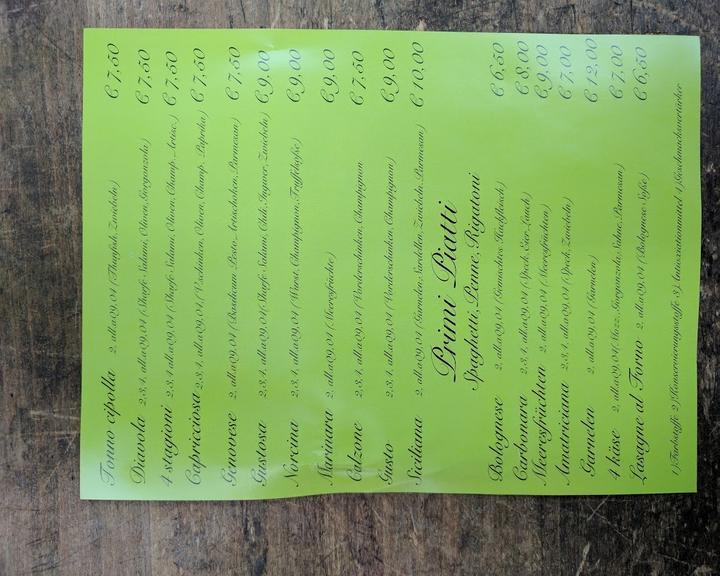 Tonno cipolla 2, alla09,01 (Thunfisch, Zwiebeln) € 7,50
Diavola 2,3,4, alla09,01 (Scharfe Salami, Oliven, Gorgonzola) € 7,50
4 stagioni 2,3,4 alla09,01 (Scharfe Salami, Oliven, Champ., Artisc.) € 7,50
Capricciosa 2,3,4, alla09,01 (Vorderschinken, Oliven, Champ., Paprika) € 7,50
Genovese 2, alla09,01 (Basilikum-Pesto, Artischoken, Parmesan) € 7,50
Gustosa 2,3,4, alla09,01 (Scharfe Salami, Chili, Ingwer, Zwiebeln) € 9,00
Norcina 2,3,4, alla09,01 (Wurst, Champignon, Trüffelsoße) € 9,00
Marinara 2, alla09,01 (Meeresfrüchte) € 9,00
Calzone 2,3,4, alla09,01 (Vorderschinken, Champignon € 7,50
Gusto 2,3,4, alla09,01 (Vorderschinken, Champignon) € 9,00
Siciliana 2, alla09,01 (Garnelen, Sardellen, Zwiebeln, Parmesan) € 10,00
Primi Piatti
Spaghetti, Penne, Rigatoni
Bolognese 2, alla09,01 (Gemischtes Hackfleisch) € 6,50
Carbonara 2,3,4, alla09,01 (Speck, Eier, Lauch) € 8,00
Meeresfrüchten 2, alla09,01 (Meeresfrüchten) € 9,00
Amatriciana 2,3,4, alla09,01 (Speck, Zwiebeln) € 7,00
Garnelen 2, alla09,01 (Garnelen) € 12,00
4 Käse 2, alla09,01 (Mozz., Gorgonzola, Sahne, Parmesan) € 7,00
Lasagne al Forno 2, alla09,01 (Bolognese Soße) € 6,50
1) Farbstoffe 2) Konservierungsstoffe 3) Antioxidationsmittel 4) Geschmacksverstärker